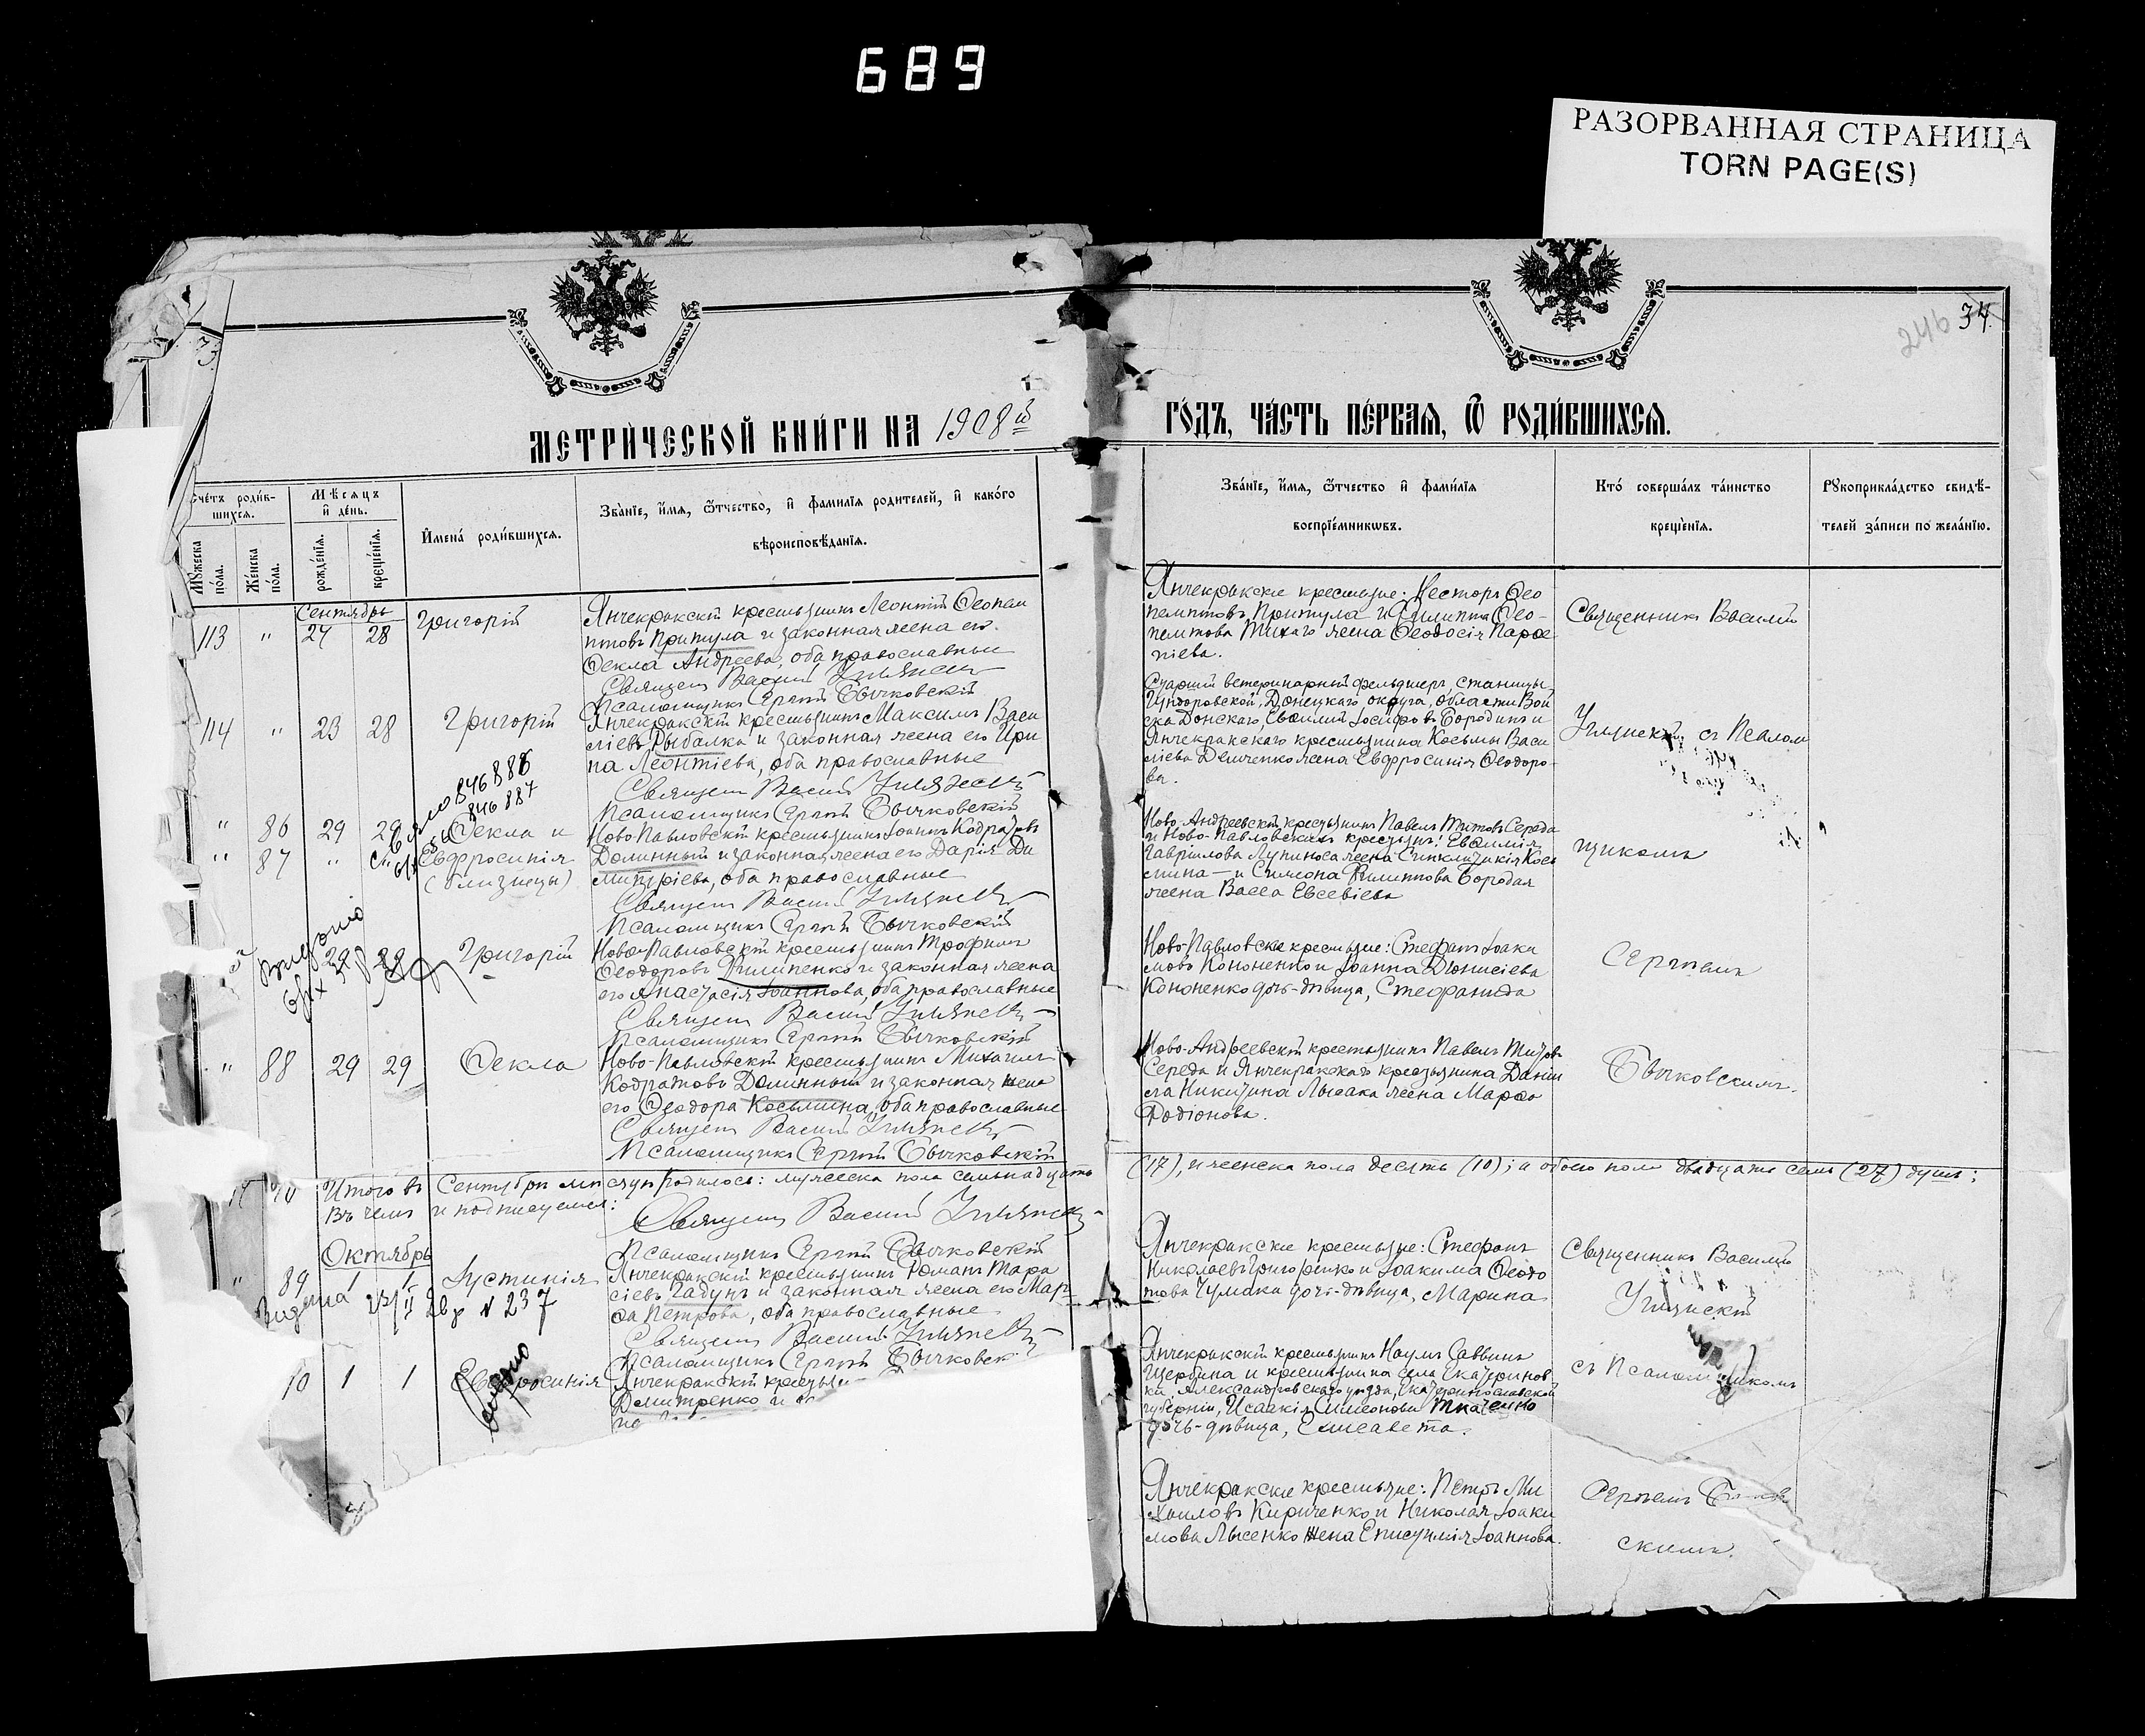 689
РАЗОРВАННАЯ СТРАНИЦА
TORN PAGE(S)
246 34
МЕТРИ́ЧЕСКОЙ КНИ́ГИ НА 1908 й
ГО́ДЪ, ЧА́СТЬ ПЕ́РВАѦ, Ѿ РОДИ́ВШИХСѦ.
Сче́тъ роди́в-
шихся.
Мѣ́сяцъ
и де́нь.
Мꙋ́жеска
по́ла.
Же́нска
по́ла.
рожде́нїя.
креще́нїя.
Имена́ роди́вшихся.
Зва́нїе, и́мя, ѻ҆́тчество, и фами́лїя роди́телей, и како́го
вѣроисповѣ́данїя.
Зва́нїе, и́мя, ѻ҆́тчество и фами́лїя
воспрїе́мникωвъ.
Кто́ соверша́лъ та́инство
креще́нїя.
Рꙋкоприкла́дство свидѣ́-
телей за́писи по жела́нїю.
Сентябрь
113 " 24 28 Григорій
Янчекракскій крестьянинъ Леонтій Ѳеопем
птовъ Притула и законная жена его
Ѳекла Андреева, оба православные
Священ Василій
Псаломщикъ Сергій Бычковскій
Янчекракскіе крестьяне: Несторъ Ѳео
пемптовъ Притула и Филиппа Ѳео-
пемтова Тихаго жена Ѳеодосія Парѳе
ніева.
Священникъ Василій
114 " 23 28 Григорій
Янчекракскій крестьянинъ Максимъ Васи
ліевъ Рыбалка и законная жена его Ири
на Леонтіева, оба православные
Священ Василій
Псаломщикъ Сергій Бычковскій
Старшій ветеринарный фельдшеръ, станицы
Гундоровской, Донецкаго округа, области Вой
ска Донскаго, Евѳимій Іосифовъ Бородинъ и
Янчекракскаго крестьянина Косьмы Васи
ліева Демченко жена Евфросинія Ѳеодоро-
ва.
съ Псалом
846888
846887
" 86 29 29 Ѳекла и
" 87 " Евфросинія
(близнецы)
Ново-Павловскій крестьянинъ Іоаннъ Кодратовъ
Долинный и законная жена его Дарія Ди
митріева, оба православные
Священ Василій
Псаломщикъ Сергій Бычковскій
Ново-Андреевскій крестьянинъ Павелъ Титовъ Середа
и Ново-Павловскихъ крестьянъ: Евѳимія
Гавріилова Лупиноса жена Синклитикія Кось
мина — и Симеона Филиппова Бородая
жена Васса Евсевіева
щикомъ
29 29 Григорій
Ново-Павловскій крестьянинъ Трофимъ
Ѳеодоровъ Филипенко и законная жена
его Анастасія Іоаннова, оба православные
Священ Василій
Псаломщикъ Сергій Бычковскій
Ново-Павловскіе крестьяне: Стефанъ Іоаки
мовъ Кононенко и Іоанна Діонисіева
Кононенко дочь-дѣвица, Стефанида
Сергіемъ
" 88 29 29 Ѳекла
Ново-Павловскій крестьянинъ Михаилъ
Кодратовъ Долинный и законная жена
его Ѳеодора Косьмина, оба православные
Священ Василій
Псаломщикъ Сергій Бычковскій
Ново-Андреевскій крестьянинъ Павелъ Титовъ
Середа и Янчекракскаго крестьянина Дании
ла Никитина Лысака жена Марѳа
Родіонова.
Бычковскимъ.
Итого въ Сентябрѣ мѣсяцѣ родилось: мужеска пола семьнадцать
(17), и женска пола десять (10); а обоего пола двадцать семь (27) душъ;
Въ чемъ и подписуемся:
Священ Василій
Псаломщикъ Сергій Бычковскій
Октябрь
" 89 1 1 Іустинія
Янчекракскій крестьянинъ Романъ Тара
сіевъ Гадунъ и законная жена его Мар-
ѳа Петрова, оба православные
Священ Василій
Псаломщикъ Сергій Бычковск
№ 237
Янчекракскіе крестьяне: Стефанъ
Николаевъ Григоренко и Іоакима Ѳеодо
това Чумака дочь-дѣвица, Марина
Священникъ Василій
1 1 Евфросинія
Янчекракскій крестьян
Дмитренко и
Янчекракскій крестьянинъ Наумъ Саввинъ
Щербина и крестьянина села Екатеринов
ки, Александровскаго уѣзда, Екатеринославской
губерніи, Исаакія Симеонова Ткаченко
дочь-дѣвица, Елисавета.
съ Псаломщикомъ
Янчекракскіе крестьяне: Петръ Ми
хаиловъ Кириченко и Николая Іоаки
мова Лысенко жена Епистимія Іоаннова.
Сергіемъ
скимъ.